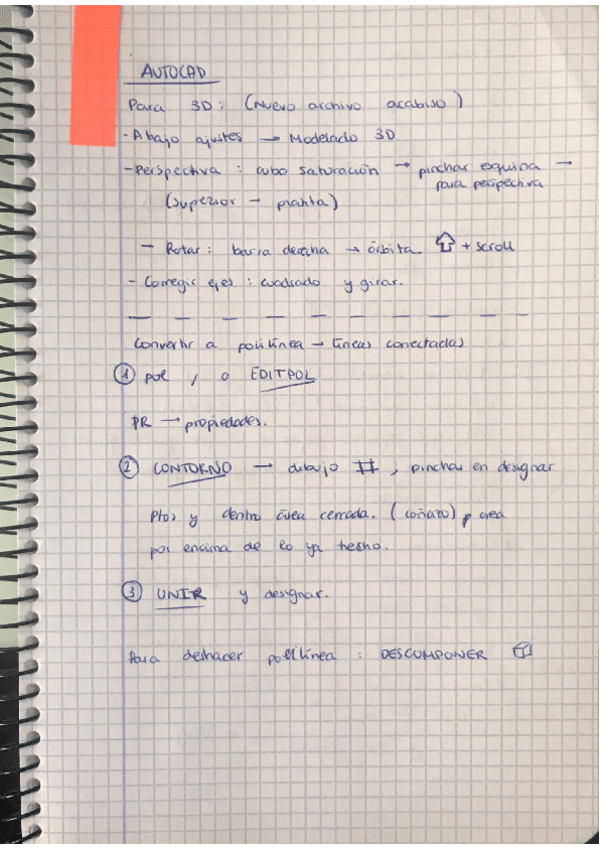 AUTOCAD
Para 3D: (Nuevo archivo acabiso)
- Abajo ajustes → Modelado 3D
- Perspectiva : cubo saturación → pinchar esquina →
para perspectiva
(superior - planta)
- Rotar: barra derecha → órbita. ⇧ + scroll
- Corregir ejes : cuadrado y girar.
Convertir a polilínea → líneas conectadas
① pol , o EDITPOL
PR → propiedades.
② CONTORNO → dibujo #, pinchar en designar
ptos y dentro área cerrada. (coñazo), crea
por encima de lo ya hecho.
③ UNIR y designar.
Para deshacer polilínea : DESCOMPONER